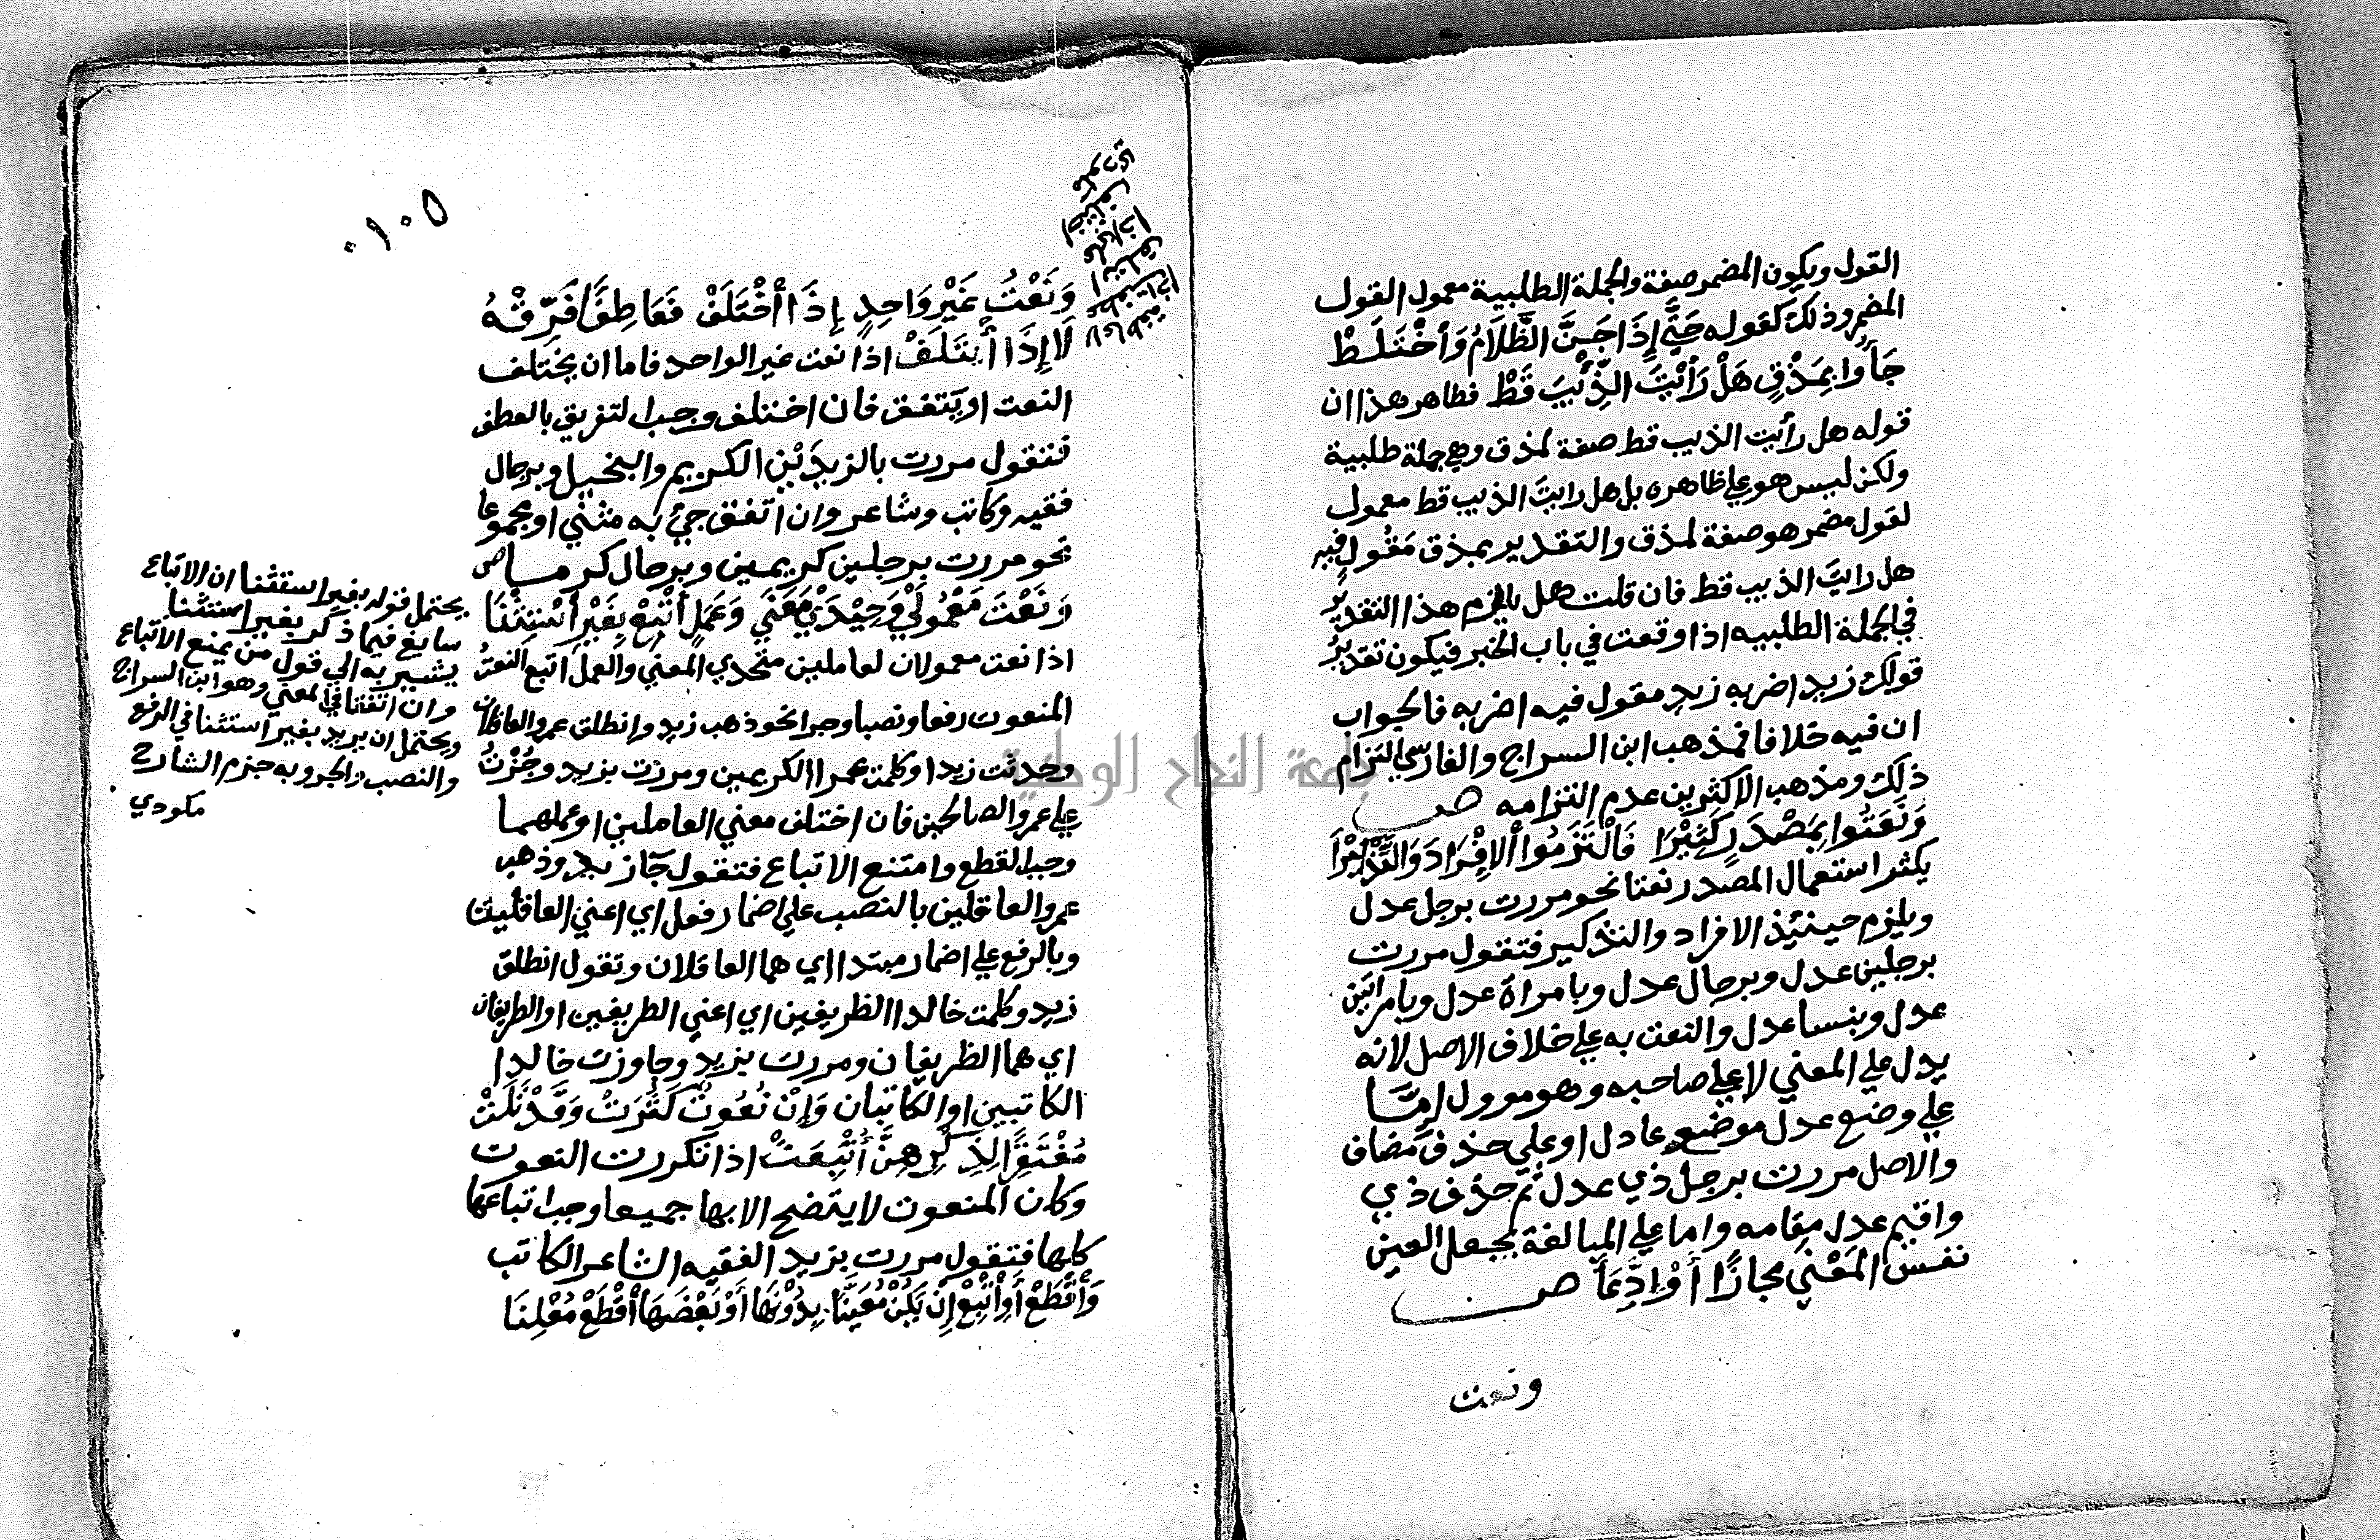 القول ويكون المضمر صفة والجملة الطلبية معمول القول
المضمر وذلك كقوله حَتَّي إِذَا جَنَّ الظَّلَامُ وَاخْتَلَطْ
جَاؤُا بِمَذْقٍ هَلْ رَأَيْتَ الذِّئْبَ قَطْ فظاهر هذا ان
قوله هل رأيت الذيب قط صفة لمذق وهي جملة طلبية
ولكن ليس هو علي ظاهره بل هل رايت الذيب قط معمول
لقول مضمر هو صفة لمذق والتقدير بمذق مَقُولٍ فيه
هل رايت الذيب قط فان قلت هل يلزم هذا التقدير
في الجملة الطلبيه اذا وقعت في باب الخبر فيكون تقدير
قولك زيد اضربه زيد مقول فيه اضربه فالجواب
ان فيه خلافا فمذهب ابن السراج والفارسي التزام
ذلك ومذهب الاكثرين عدم التزامه ص
وَنَعَتُوا بِمَصْدَرٍ كَثِيْرَا فَالْتَزَمُوا الْإِفْرَادَ وَالتَّذْكِيْرَا
يكثر استعمال المصدر نعتا نحو مررت برجل عدل
ويلزم حينئذ الافراد والتذكير فتقول مررت
برجلين عدل وبرجال عدل وبامراة عدل وبامراتين
عدل وبنسا عدل والنعت به علي خلاف الاصل لانه
يدل علي المعني لا علي صاحبه وهو موول اِمَّا
علي وضع عدل موضع عادل او علي حذف مضاف
والاصل مررت برجل ذي عدل ثم حذف ذي
واقيم عدل مقامه واما علي المبالغة بجعل العين
نفس المَعْنَي مجازًا أَوْ ادِّعَاً ص
ونعت
١٠٥
وَنَعْتُ غَيْرِ وَاحِدٍ إِذَا اخْتَلَفْ فَعَاطِفًا فَرِّقْهُ
لَا إِذَا ائْتَلَفْ اذا نعت غير الواحد فاما ان يختلف
النعت او يتفق فان اختلف وجب التفريق بالعطف
فتقول مررت بالزيدَيْنِ الكريم والبخيل وبرجال
فقيه وكاتب وشاعر وان اتفق جئ به مثني او مجموعا
نحو مررت برجلين كريمين وبرجال كرما ص
وَنَعْتَ مَعْمُولَيْ وَحِيْدَيْ مَعْنَي وَعَمَلٍ أَتْبِعْ بِغَيْرِ اسْتِثْنَا
اذا نعت معمولان لعاملين متحدي المعني والعمل اتبع النعت
المنعوت رفعا ونصبا وجرا نحو ذهب زيد وانطلق عمرو العاقلان
وحدثت زيدا وكلمت عمرا الكريمين ومررت بزيد وجُزْتُ
علي عمرو الصالحين فان اختلف معني العاملين او عملهما
وجب القطع وامتنع الاتباع فتقول جَآ زيد وذهب
عمرو العاقلين بالنصب علي اضمار فعل اي اعني العاقلين
وبالرفع علي اضمار مبتدا اي هما العاقلان وتقول انطلق
زيد وكلمت خالدا الظريفين اي اعني الظريفين او الظريفان
اي هما الظريفان ومررت بزيد وجاوزت خالدا
الكاتبين او الكاتبان وَإِنْ نُعُوتٌ كَثُرَتْ وَقَدْ تَلَتْ
مُفْتَقِرًا لِذِكْرِهِنَّ أُتْبِعَتْ اذا تكررت النعوت
وكان المنعوت لا يتضح الا بها جميعا وجب اتباعها
كلها فتقول مررت بزيد الفقيه الشاعر الكاتب
وَاقْطَعْ أَوْ اتْبِعْ إِنْ يَكُنْ مُعَيَّنَا بِدُوْنِهَا أَوْ بَعْضَهَا اقْطَعْ مُعْلِنَا
يحتمل قوله بغير استثنا ان الاتباع
سايغ فيما ذكر بغير استثنا
يشير به الي قول من يمنع الاتباع
وان اتفقا في المعني وهو ابن السراج
ويحتمل ان يريد بغير استثنا في الرفع
والنصب والجر وبه جزم الشارح
مكودي
جامعة النجاح الوطنية